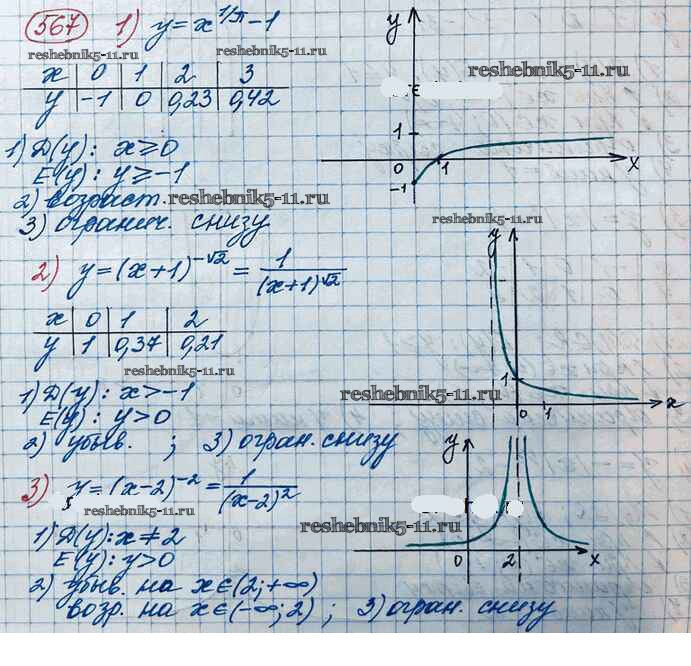 567 1) y = x^1/π - 1
reshebnik5-11.ru
x | 0 | 1 | 2 | 3
y | -1 | 0 | 0,23 | 0,42
1) D(y): x ≥ 0
E(y): y ≥ -1
2) возраст. reshebnik5-11.ru
3) огранич. снизу
y
reshebnik5-11.ru
1
0 1 x
-1
reshebnik5-11.ru
2) y = (x+1)^-√2 = 1/(x+1)^√2
x | 0 | 1 | 2
y | 1 | 0,37 | 0,21
reshebnik5-11.ru
1) D(y): x > -1
E(y): y > 0
2) убыв. ; 3) огран. снизу
y
reshebnik5-11.ru
1
0 1 x
3) y = (x-2)^-2 = 1/(x-2)^2
reshebnik5-11.ru
1) D(y): x ≠ 2
E(y): y > 0
2) убыв. на x ∈ (2; +∞)
возр. на x ∈ (-∞; 2) ; 3) огран. снизу
y
reshebnik5-11.ru
0 2 x